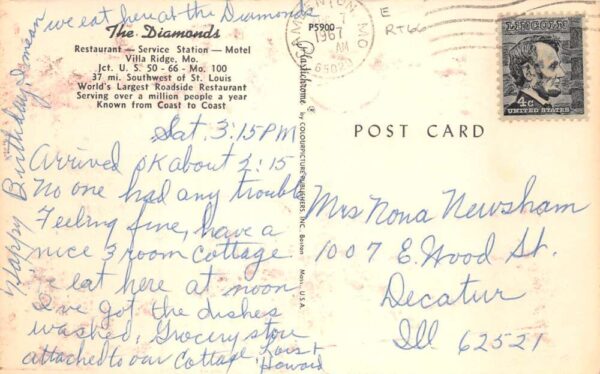 I mean we eat here at the Diamonds
The Diamonds
Restaurant — Service Station — Motel
Villa Ridge, Mo.
Jct. U. S. 50 - 66 - Mo. 100
37 mi. Southwest of St. Louis
World's Largest Roadside Restaurant
Serving over a million people a year
Known from Coast to Coast
Happy Birthday,
Sat. 3:15 PM
Arrived OK about 2:15
No one had any trouble
Feeling fine, have a
nice 3 room cottage.
We eat here at noon
I've got the dishes
washed, Grocery store
attached to our cottage,
Lois &
Howard
P5900
Plastichrome ®
by COLOURPICTURE PUBLISHERS, INC. Boston Mass. U.S.A.
MO.
7
1967
AM
E
RT66
LINCOLN
4c
UNITED STATES
POST CARD
Mrs Nona Newsham
1007 E. Wood St.
Decatur
Ill 62521